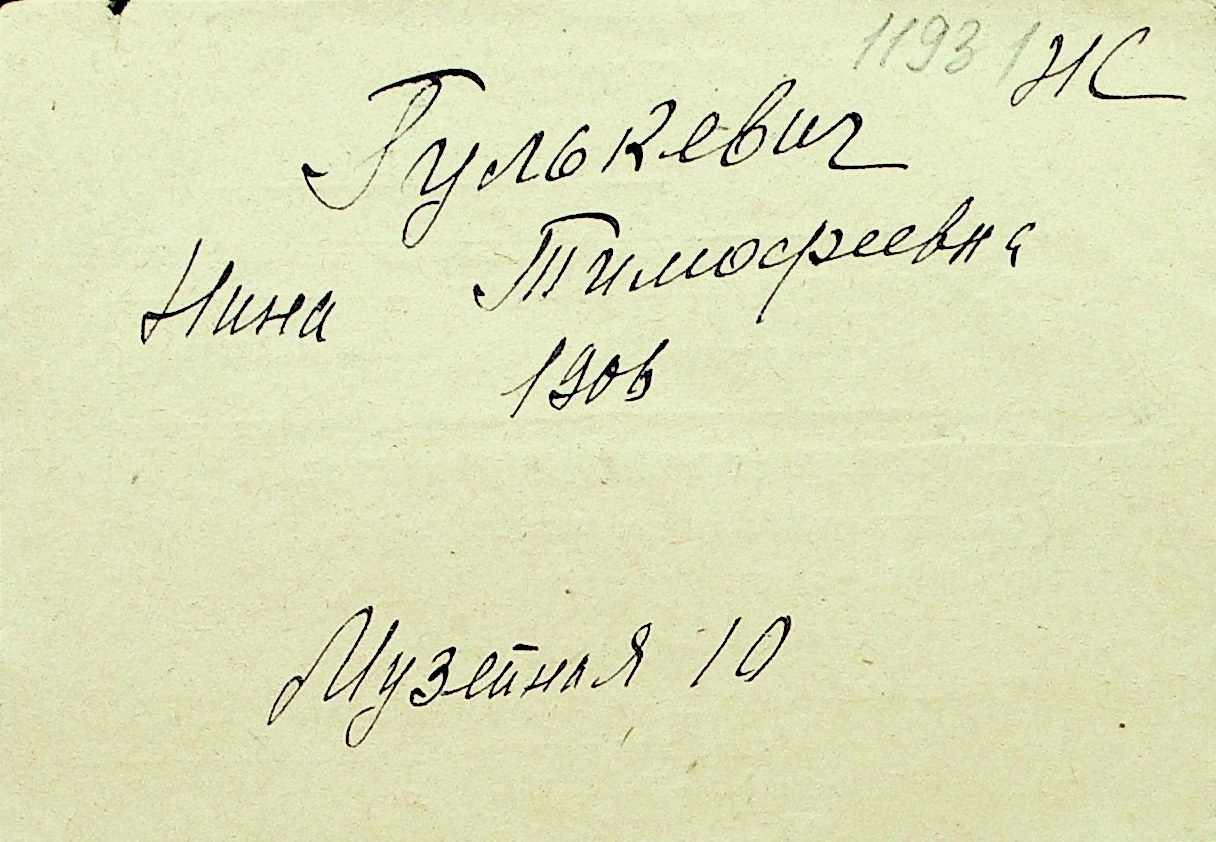 11931 НС
Гулькевич
Нина Тимофеевна
1906
Музейная 10